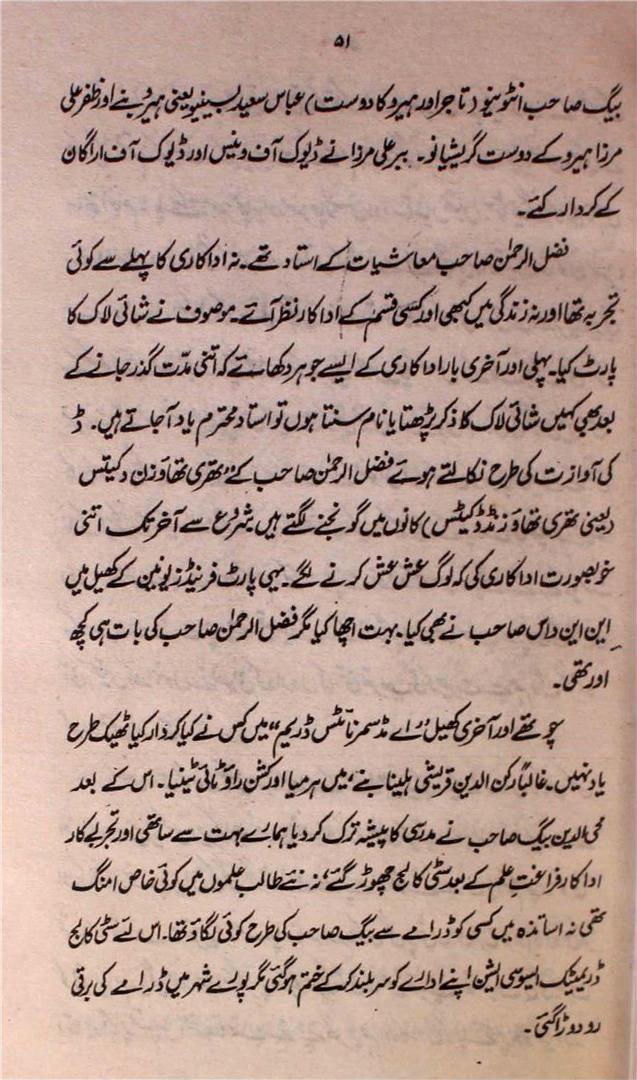 ۵۱
بیگ صاحب انٹونیو (تاجر اور ہیرو کا دوست) عباس سعید بسینیو یعنی ہیرو بنے اور ظفر علی
مرزا ہیرو کے دوست گریشیانو۔ ببر علی مرزا نے ڈیوک آف وینس اور ڈیوک آف اراگان
کے کردار کئے۔
فضل الرحمٰن صاحب معاشیات کے استاد تھے۔ نہ اداکاری کا پہلے سے کوئی
تجربہ تھا اور نہ زندگی میں کبھی اور کسی قسم کے اداکار نظر آئے۔ موصوف نے شائی لاک کا
پارٹ کیا۔ پہلی اور آخری بار اداکاری کے ایسے جوہر دکھائے کہ اتنی مدّت گذر جانے کے
بعد بھی کہیں شائی لاک کا ذکر پڑھتا یا نام سنتا ہوں تو استاد محترم یاد آجاتے ہیں۔ ڈ
کی آواز ت کی طرح نکالتے ہوئے فضل الرحمٰن صاحب کے "تھری تھاؤزن دکیتس
(یعنی تھری تھاوَزنڈ ڈکیٹس) کانوں میں گونجنے لگتے ہیں شروع سے آخر تک اتنی
خوبصورت اداکاری کی کہ لوگ عش عش کرنے لگے۔ یہی پارٹ فرینڈز یونین کے کھیل میں
این این داس صاحب نے بھی کیا۔ بہت اچھا کیا مگر فضل الرحمٰن صاحب کی بات ہی کچھ
اور تھی۔
چوتھے اور آخری کھیل "اے مڈسمرنائٹس ڈریم" میں کس نے کیا کردار کیا ٹھیک طرح
یاد نہیں۔ غالباً رکن الدین قریشی ہلینا بنے، میں ہرمیا اور کشن راؤ ٹائی ٹینیا۔ اس کے بعد
محی الدین بیگ صاحب نے مدرسی کا پیشہ ترک کر دیا ہمارے بہت سے ساتھی اور تجربے کار
اداکار فراغتِ علم کے بعد سٹی کالج چھوڑ گئے، نہ نئے طالب علموں میں کوئی خاص امنگ
تھی نہ اساتذہ میں کسی کو ڈرامے سے بیگ صاحب کی طرح کوئی لگاؤ تھا۔ اس لئے سٹی کالج
ڈریمیٹک ایسوسی ایشن اپنے ادارے کو سر بلند کرکے ختم ہوگئی مگر پورے شہر میں ڈرامے کی برقی
رو دوڑا گئی۔